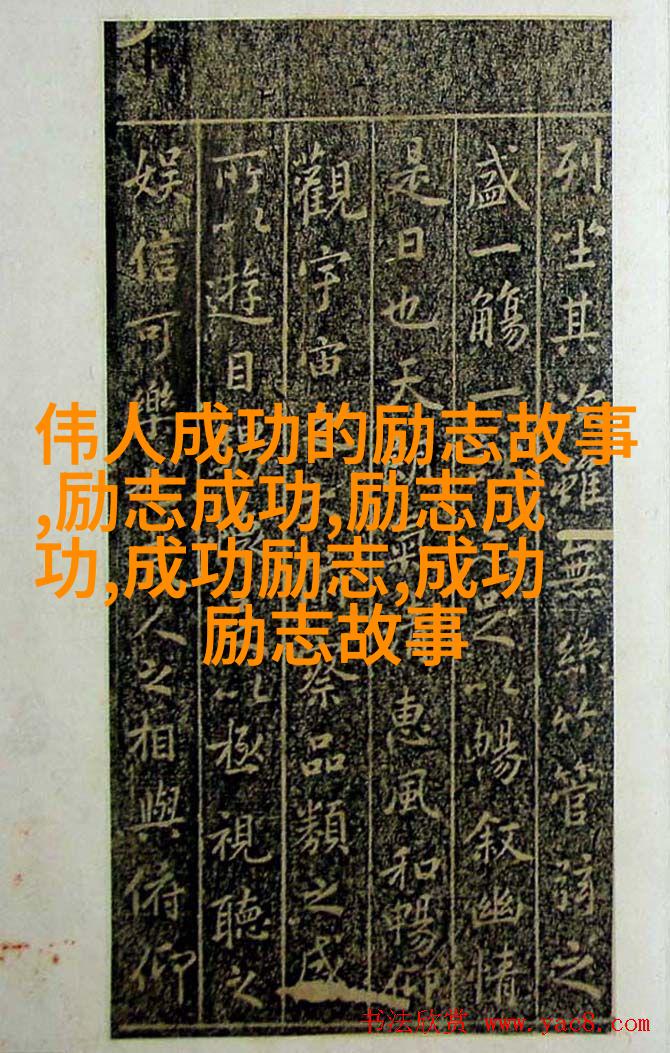 伟人成功的励志故事
,励志成功,励志成
功,成功励志,成功
励志故事
列坐其次雖無絲竹管弦之
盛一觴一足以暢叙幽情
是日也天惠風和暢仰
觀宇宙察品類之盛
所以遊目以極視聽之
娛信可樂人之相與俯仰
书法欣赏 www.yac8.com